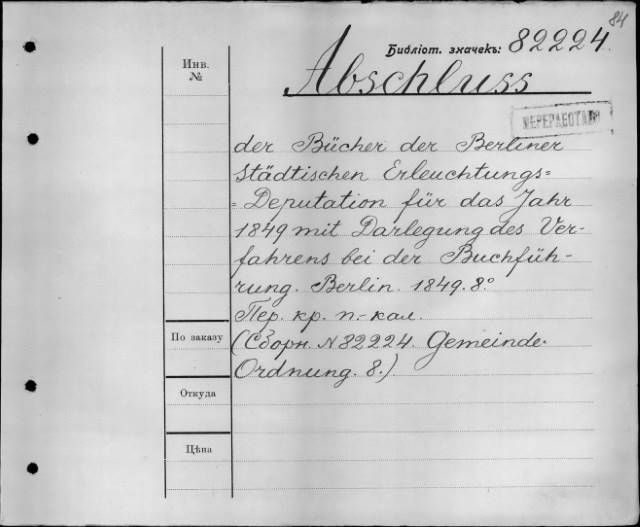 84
Библіот. значекъ: 82224.
Инв. №
Abschluss
ПЕРЕРАБОТАН
der Bücher der Berliner
städtischen Erleuchtungs=
=Deputation für das Jahr
1849 mit Darlegung des Ver-
fahrens bei der Buchfüh-
rung. Berlin. 1849. 8.º
Пер. кр. п.-кал.
По заказу
(Сборн. N 82224. Gemeinde-
Ordnung. 8.)
Откуда
Цѣна